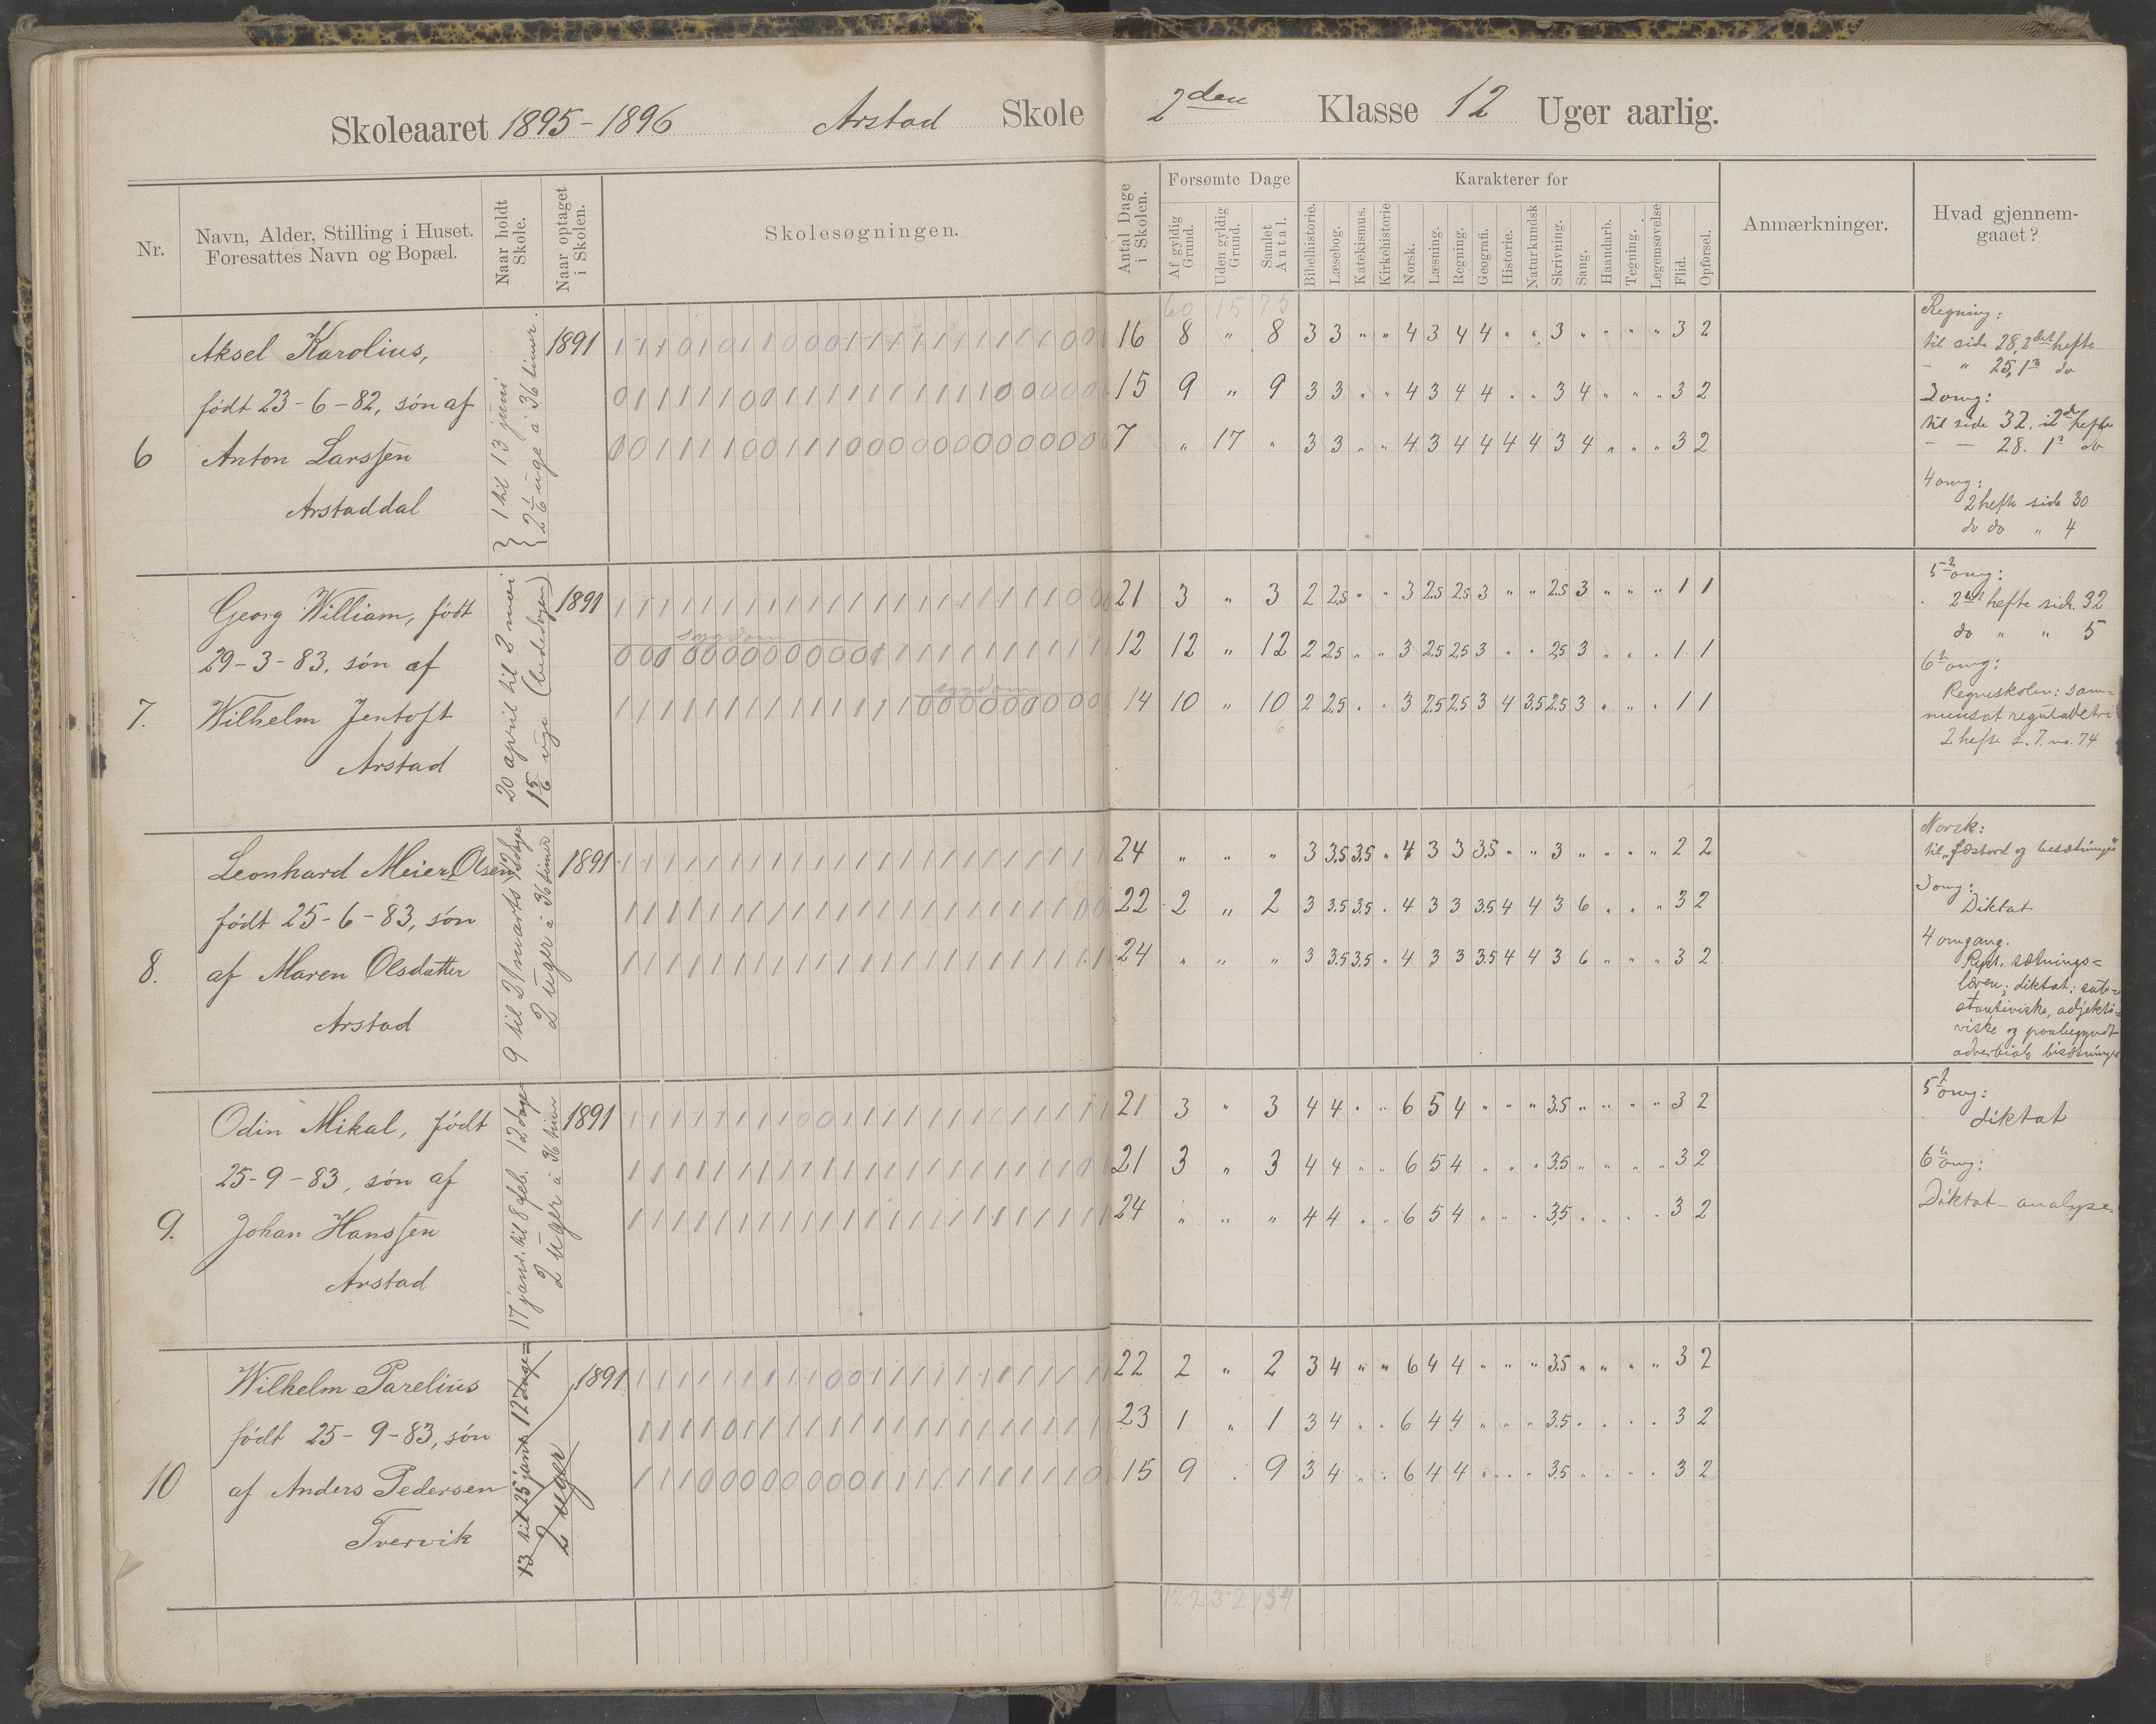 Skoleaaret 1895-1896 Arstad Skole 2den Klasse 12 Uger aarlig.
Nr.
Navn, Alder, Stilling i Huset.
Foresattes Navn og Bopæl.
Naar holdt Skole.
Naar optaget i Skolen.
Skolesøgningen.
Antal Dage i Skolen.
Forsømte Dage
Af gyldig Grund.
Uden gyldig Grund.
Samlet Antal.
Karakterer for
Bibelhistorie.
Læsebog.
Katekismus.
Kirkehistorie
Norsk.
Læsning.
Regning.
Geografi.
Historie.
Naturkundsk
Skrivning.
Sang.
Haandarb.
Tegning.
Legemsøvelse
Flid.
Opførsel.
Anmærkninger.
Hvad gjennemgaaet?
60 15 75
6
Aksel Karolius,
født 23-6-82, søn af
Anton Larssen
Arstaddal
1 til 13 juni
2 1/6 uge à 36 timer.
1891
1 1 1 0 1 0 1 1 0 0 0 1 1 1 1 1 1 1 1 1 1 0 0 0
16 8 " 8 3 3 " " 4 3 4 4 " " 3 " " " " 3 2
15 9 " 9 3 3 " " 4 3 4 4 " " 3 4 " " " 3 2
7 " 17 " 3 3 " " 4 3 4 4 4 4 3 4 " " " 3 2
Regning:
til side 28, 2det hefte
- " 25, 1ste do
3 omg:
til side 32. i 2d hefte
- - 28. 1ste do
4 omg:
2 hefte side 30
do do " 4
7.
Georg William, født
29-3-83, søn af
Wilhelm Jentoft
Arstad
20 april til 2 mai
1 5/6 uge (bededagen)
1891
sygdom
sygdom
21 3 " 3 2 2.5 " " 3 2.5 2.5 3 " " 2.5 3 " " " 1 1
12 12 " 12 2 2.5 " " 3 2.5 2.5 3 " " 2.5 3 " " " 1 1
14 10 " 10 2 2.5 " " 3 2.5 2.5 3 4 3.5 2.5 3 " " " 1 1
6
5te omg:
2det hefte side 32
do " " 5
6te omg:
Regneskolen: sam=
mensat reguladetri
2 hefte s. 7. no. 74
8.
Leonhard Meier Olsen,
født 25-6-83, søn
af Maren Olsdatter
Arstad
9 til 21 marts 12 dage
2 uger à 36 timer
1891
24 " " " 3 3.5 3.5 " 4 3 3 3.5 " " 3 " " " " 2 2
22 2 " 2 3 3.5 3.5 " 4 3 3 3.5 4 4 3 6 " " " 3 2
24 " " " 3 3.5 3.5 " 4 3 3 3.5 4 4 3 6 " " " 3 2
Norsk:
3 omg:
Diktat
4 omgang.
Rept. sætnings=
læren; diktat; sub=
stantiviske, adjekti=
viske og paabegyndt
adverbiale bisætninger
9.
Odin Mikal, født
25-9-83, søn af
Johan Hanssen
Arstad
17 janr. til 8 feb. 12 dage =
2 uger à 36 timer
1891
21 3 " 3 4 4 " " 6 5 4 " " " 3.5 " " " " 3 2
21 3 " 3 4 4 " " 6 5 4 " " " 3.5 " " " " 3 2
24 " " " 4 4 " " 6 5 4 " " " 3.5 " " " " 3 2
5te omg:
diktat
6te omg:
Diktat - analyse.
10
Wilhelm Parelius
født 25-9-83, søn
af Anders Pedersen
Tvervik
13 til 25 janr. 12 dage =
2 uger
1891
22 2 " 2 3 4 " " 6 4 4 " " " 3.5 " " " " 3 2
23 1 " 1 3 4 " " 6 4 4 " " " 3.5 " " " " 3 2
15 9 " 9 3 4 " " 6 4 4 " " " 3.5 " " " " 3 2
122 32 154